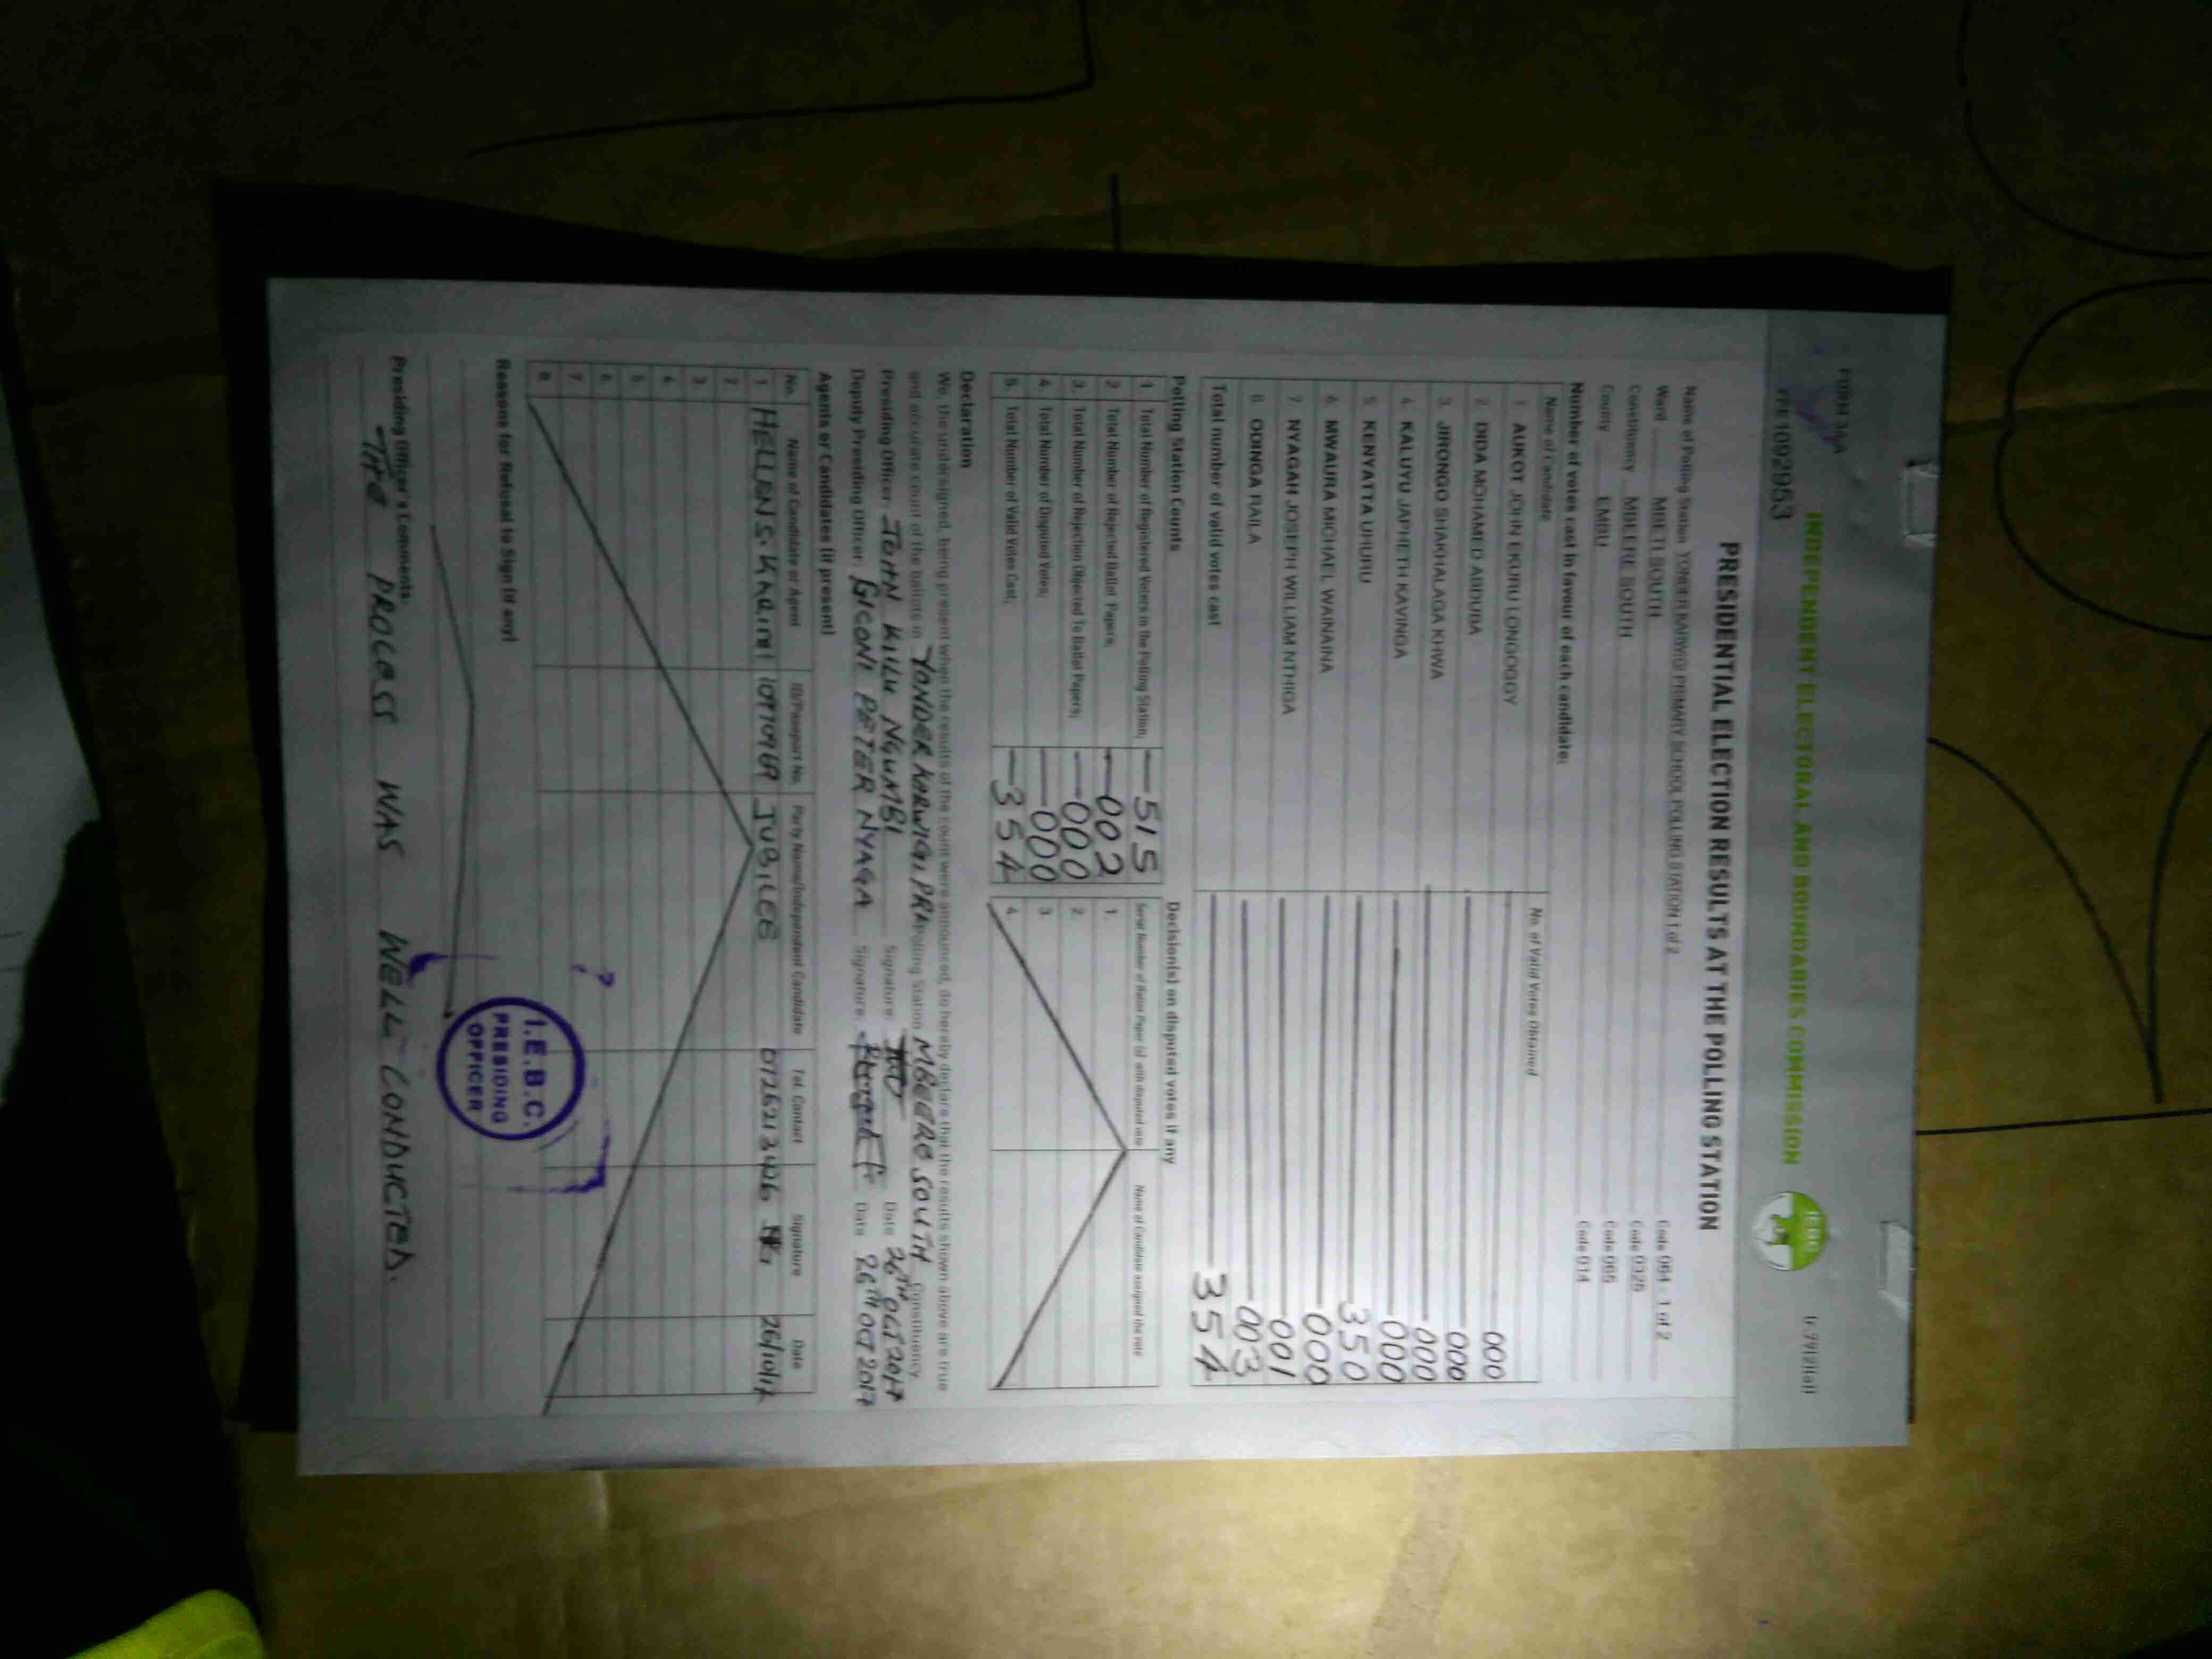 FORM 34A
INDEPENDENT ELECTORAL AND BOUNDARIES COMMISSION
IEBC
PRE1092953
PRESIDENTIAL ELECTION RESULTS AT THE POLLING STATION
Name of Polling Station YONDER KARWIGI PRIMARY SCHOOL POLLING STATION 1 of 2 Code 064 - 1 of 2
Ward MBETI SOUTH Code 0325
Constituency MBEERE SOUTH Code 065
County EMBU Code 014
Number of votes cast in favour of each candidate:
Name of Candidate No. of Valid Votes Obtained
1. AUKOT JOHN EKURU LONGOGGY 000
2. DIDA MOHAMED ABDUBA 000
3. JIRONGO SHAKHALAGA KHWA 000
4. KALUYU JAPHETH KAVINGA 000
5. KENYATTA UHURU 350
6. MWAURA MICHAEL WAINAINA 000
7. NYAGAH JOSEPH WILLIAM NTHIGA 001
8. ODINGA RAILA 003
Total number of valid votes cast 354
Polling Station Counts
1. Total Number of Registered Voters in the Polling Station; 515
2. Total Number of Rejected Ballot Papers; 002
3. Total Number of Rejection Objected To Ballot Papers; 000
4. Total Number of Disputed Votes; 000
5. Total Number of Valid Votes Cast; 354
Decision(s) on disputed votes if any
Serial Number of Ballot Paper (s) with disputed vote Name of Candidate assigned the vote
1.
2
3
4.
Declaration
We, the undersigned, being present when the results of the count were announced, do hereby declare that the results shown above are true
and accurate count of the ballots in YONDER KARWIGI PRI Polling Station MBEERE SOUTH Constituency.
Presiding Officer: JOHN KILLU NGUMBI Signature: Date 26TH OCT 2017
Deputy Presiding Officer: GICONI PETER NYAGA Signature: Date 26TH OCT 2017
Agents or Candidates (if present)
No. Name of Candidate or Agent ID/Passport No. Party Name/Independent Candidate Tel. Contact Signature Date
1 HELLEN S. JUBILEE 26/10/17
2.
3.
4.
5
6.
7.
8.
Reasons for Refusal to Sign (if any)
I.E.B.C.
PRESIDING
OFFICER
Presiding Officer's Comments:
THE PROCESS WAS WELL CONDUCTED.